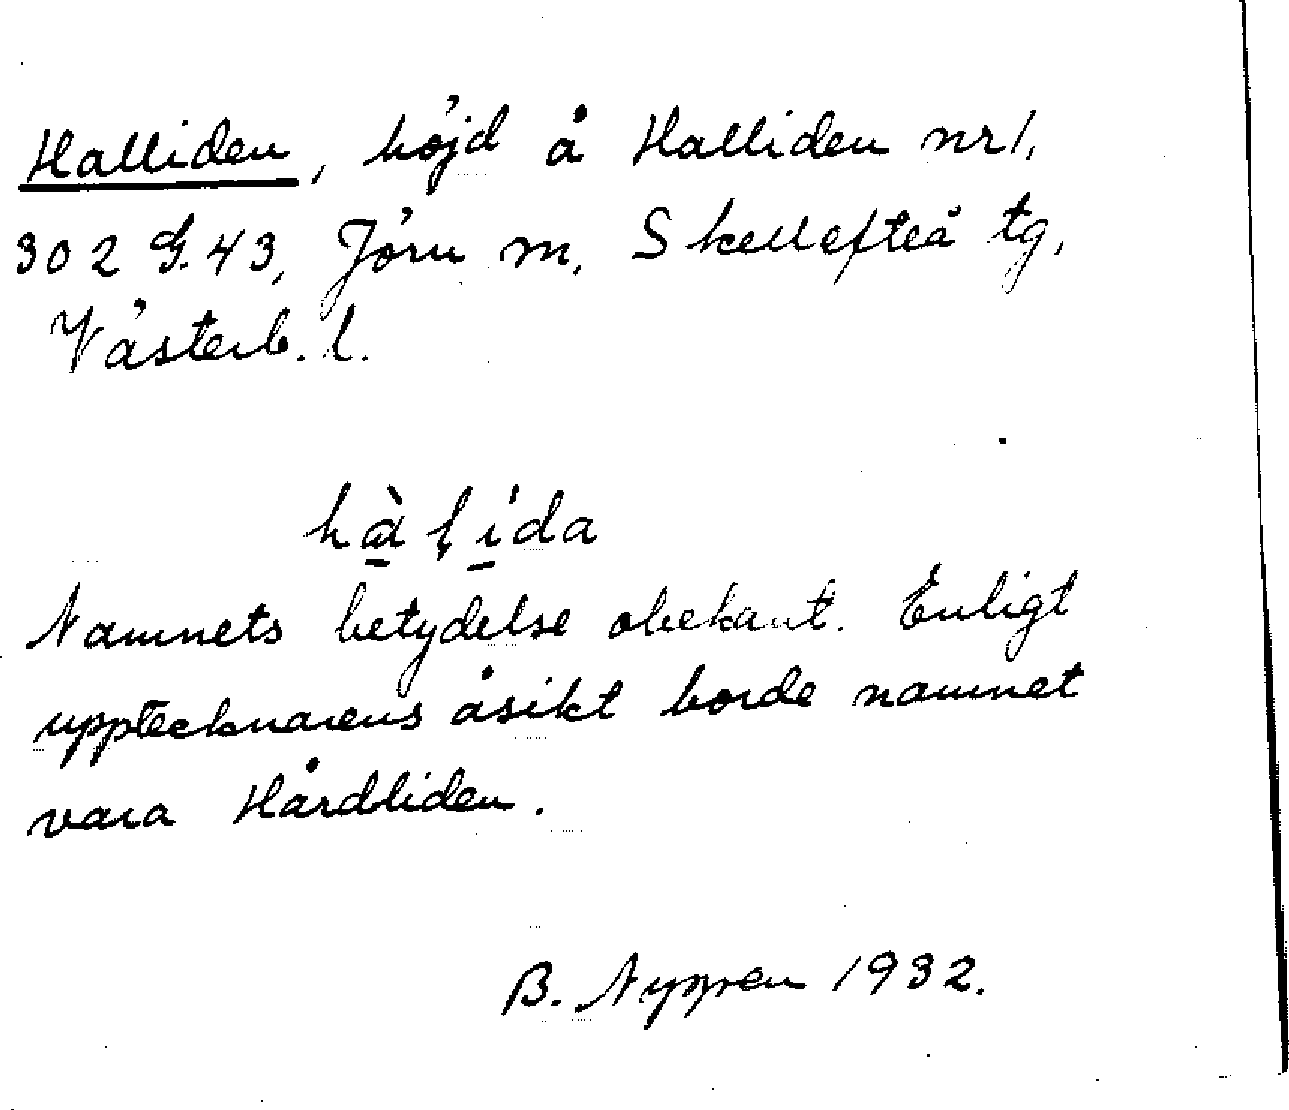 Halliden, höjd å Halliden nr 1,
302 G. 43, Jörn m, Skellefteå tg,
Västerb. l.
hàl̩ída
Namnets betydelse obekant. Enligt
upptecknarens åsikt borde namnet
vara Hårdliden.
B. 1932.